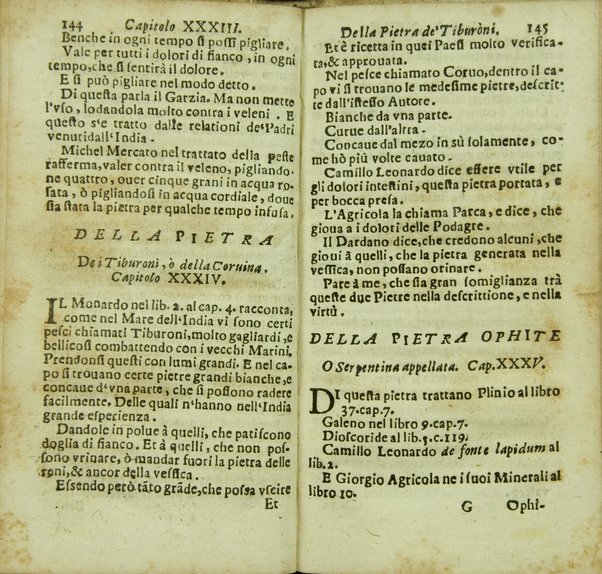 144 Capitolo XXXIII.
Benche in ogni tempo si possi pigliare.
Vale per tutti i dolori di fianco, in ogni
tempo, che si sentirà il dolore.
E si può pigliare nel modo detto.
Di questa parla il Garzia. Ma non mette
l'vso, lodandola molto contra i veleni. E
questo s'e tratto dalle relationi de'Padri
venuti dall'India.
Michel Mercato nel trattato della peste
rafferma, valer contra il veleno, pigliando-
ne quattro, ouer cinque grani in acqua ro-
sata, ò pigliandosi in acqua cordiale, doue
sia stata la pietra per qualche tempo infusa.
DELLA PIETRA
De i Tiburoni, ò della Coruina.
Capitolo XXXIV.
IL Monardo nel lib. 2. al cap. 4. racconta,
come nel Mare dell'India vi sono certi
pesci chiamati Tiburoni, molto gagliardi, e
bellicosi combattendo con i vecchi Marini.
Prendonsi questi con lumi grandi. E nel ca-
po si trouano certe pietre grandi bianche, e
concaue d'vna parte, che si possono radere
facilmente. Delle quali n'hanno nell'India
grande esperienza.
Dandole in polue à quelli, che patiscono
doglia di fianco. Et à quelli, che non pos-
sono vrinare, ò mandar fuori la pietra delle
roni, & ancor della vessica.
Essendo però tãto grãde, che possa vscire
Et
Della Pietra de'Tiburoni. 145
Et è ricetta in quei Paesi molto verifica-
ta, & approuata.
Nel pesce chiamato Coruo, dentro il ca-
po vi si trouano le medesime pietre, descrit-
te dall'istesso Autore.
Bianche da vna parte.
Curue dall'altra.
Concaue dal mezo in sù solamente, co-
me hò più volte cauato.
Camillo Leonardo dice essere vtile per
gli dolori intestini, questa pietra portata, e
per bocca presa.
L'Agricola la chiama Parca, e dice, che
gioua a i dolori delle Podagre.
Il Dardano dice, che credono alcuni, che
gioui à quelli, che la pietra generata nella
vessica, non possano orinare.
Pare à me, che sia gran somiglianza trà
queste due Pietre nella descrittione, e nella
virtù.
DELLA PIETRA OPHITE
O Serpentina appellata. Cap. XXXV.
DI questa pietra trattano Plinio al libro
37. cap. 7.
Galeno nel libro 9. cap. 7.
Dioscoride al lib. 5. c. 119.
Camillo Leonardo de fonte lapidum al
lib. 2.
E Giorgio Agricola ne i suoi Minerali al
libro 10.
G Ophi-